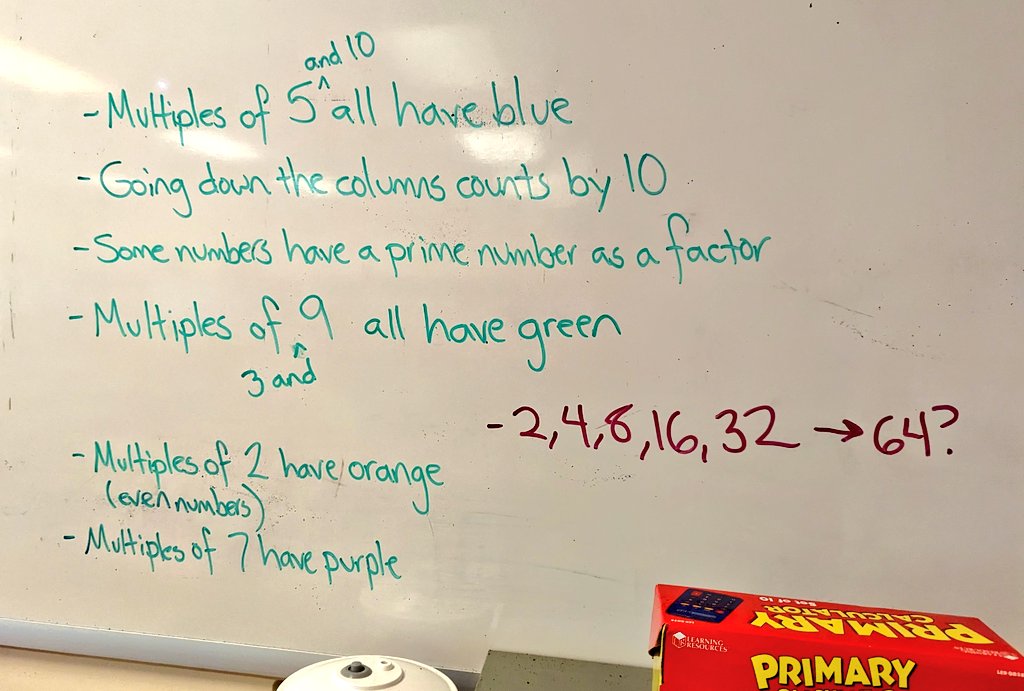 and 10
- Multiples of 5 ^ all have blue
- Going down the columns counts by 10
- Some numbers have a prime number as a factor
- Multiples of ^ 9 all have green
3 and
- 2, 4, 8, 16, 32 → 64?
- Multiples of 2 have orange
(even numbers)
- Multiples of 7 have purple
Set of 10
PRIMARY
CALCULATOR
LEARNING
RESOURCES
PRIMARY